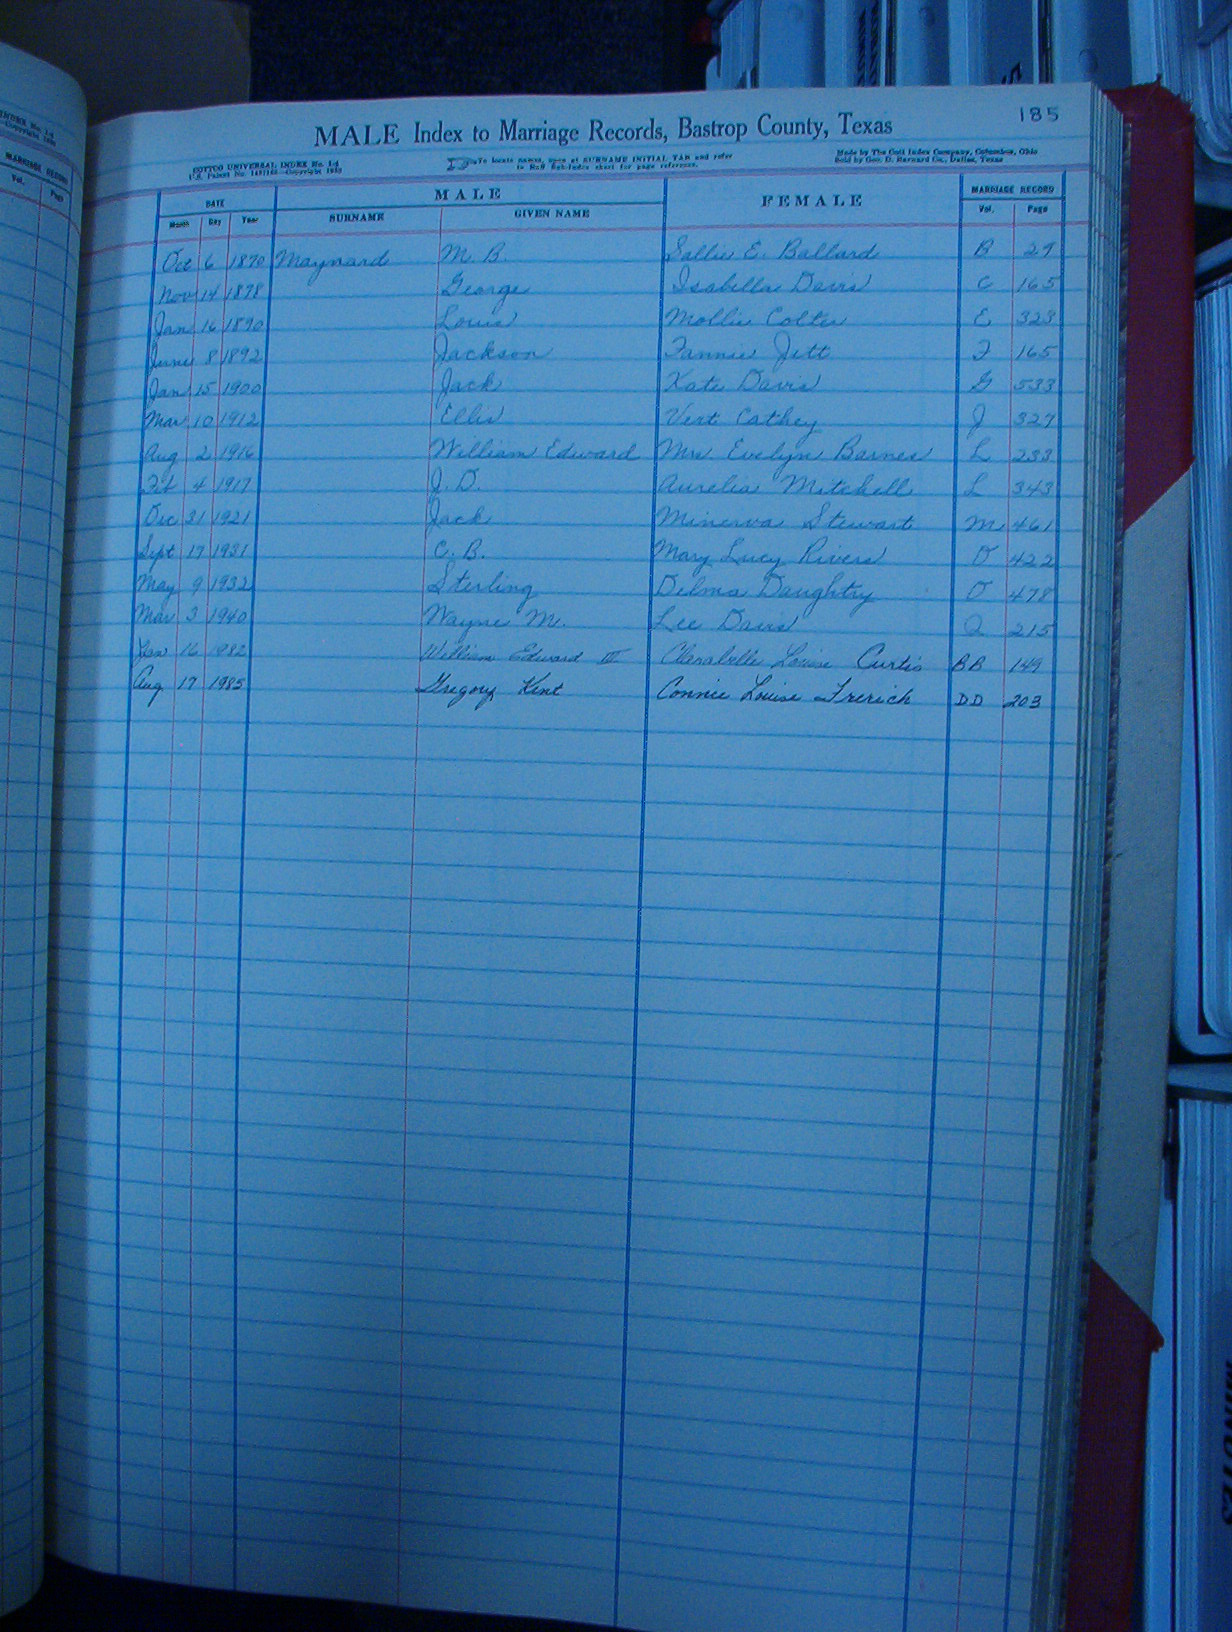 185
MALE Index to Marriage Records, Bastrop County, Texas
COTTCO UNIVERSAL INDEX No. 1-4
U.S. Patent No. Copyright
To locate names, open at SURNAME INITIAL TAB and refer
to Buff Sub-Index sheet for page reference.
Made by The Cott Index Company, Columbus, Ohio
Sold by Geo. D. Barnard Co., Dallas, Texas
DATE MALE FEMALE MARRIAGE RECORD
Month Day Year SURNAME GIVEN NAME Vol. Page
Oct 6 1870 Maynard M. B. Sallie E. Ballard B 29
Nov 14 1878 George Isabella Davis C 165
Jan 16 1890 Louis Mollie Colter E 323
June 8 1892 Jackson Fannie Jett F 165
Jan 15 1900 Jack Kate Davis G 533
Mar 10 1912 Ellis Vert Cathey J 327
Aug 2 1916 William Edward Mrs Evelyn Barnes L 233
Feb 4 1917 J. D. Aurelia Mitchell L 343
Dec 31 1921 Jack Minerva Stewart M 461
Sept 17 1931 C. B. Mary Lucy Rivers O 422
May 9 1932 Sterling Delma Daughtry O 478
Mar 3 1940 Wayne M. Lee Davis Q 215
Jan 16 1982 William Edward III Clarabelle Louise Curtis BB 149
Aug 17 1985 Gregory Kent Connie Louise Frerich DD 203
MARRIAGE RECORD
Vol. Page